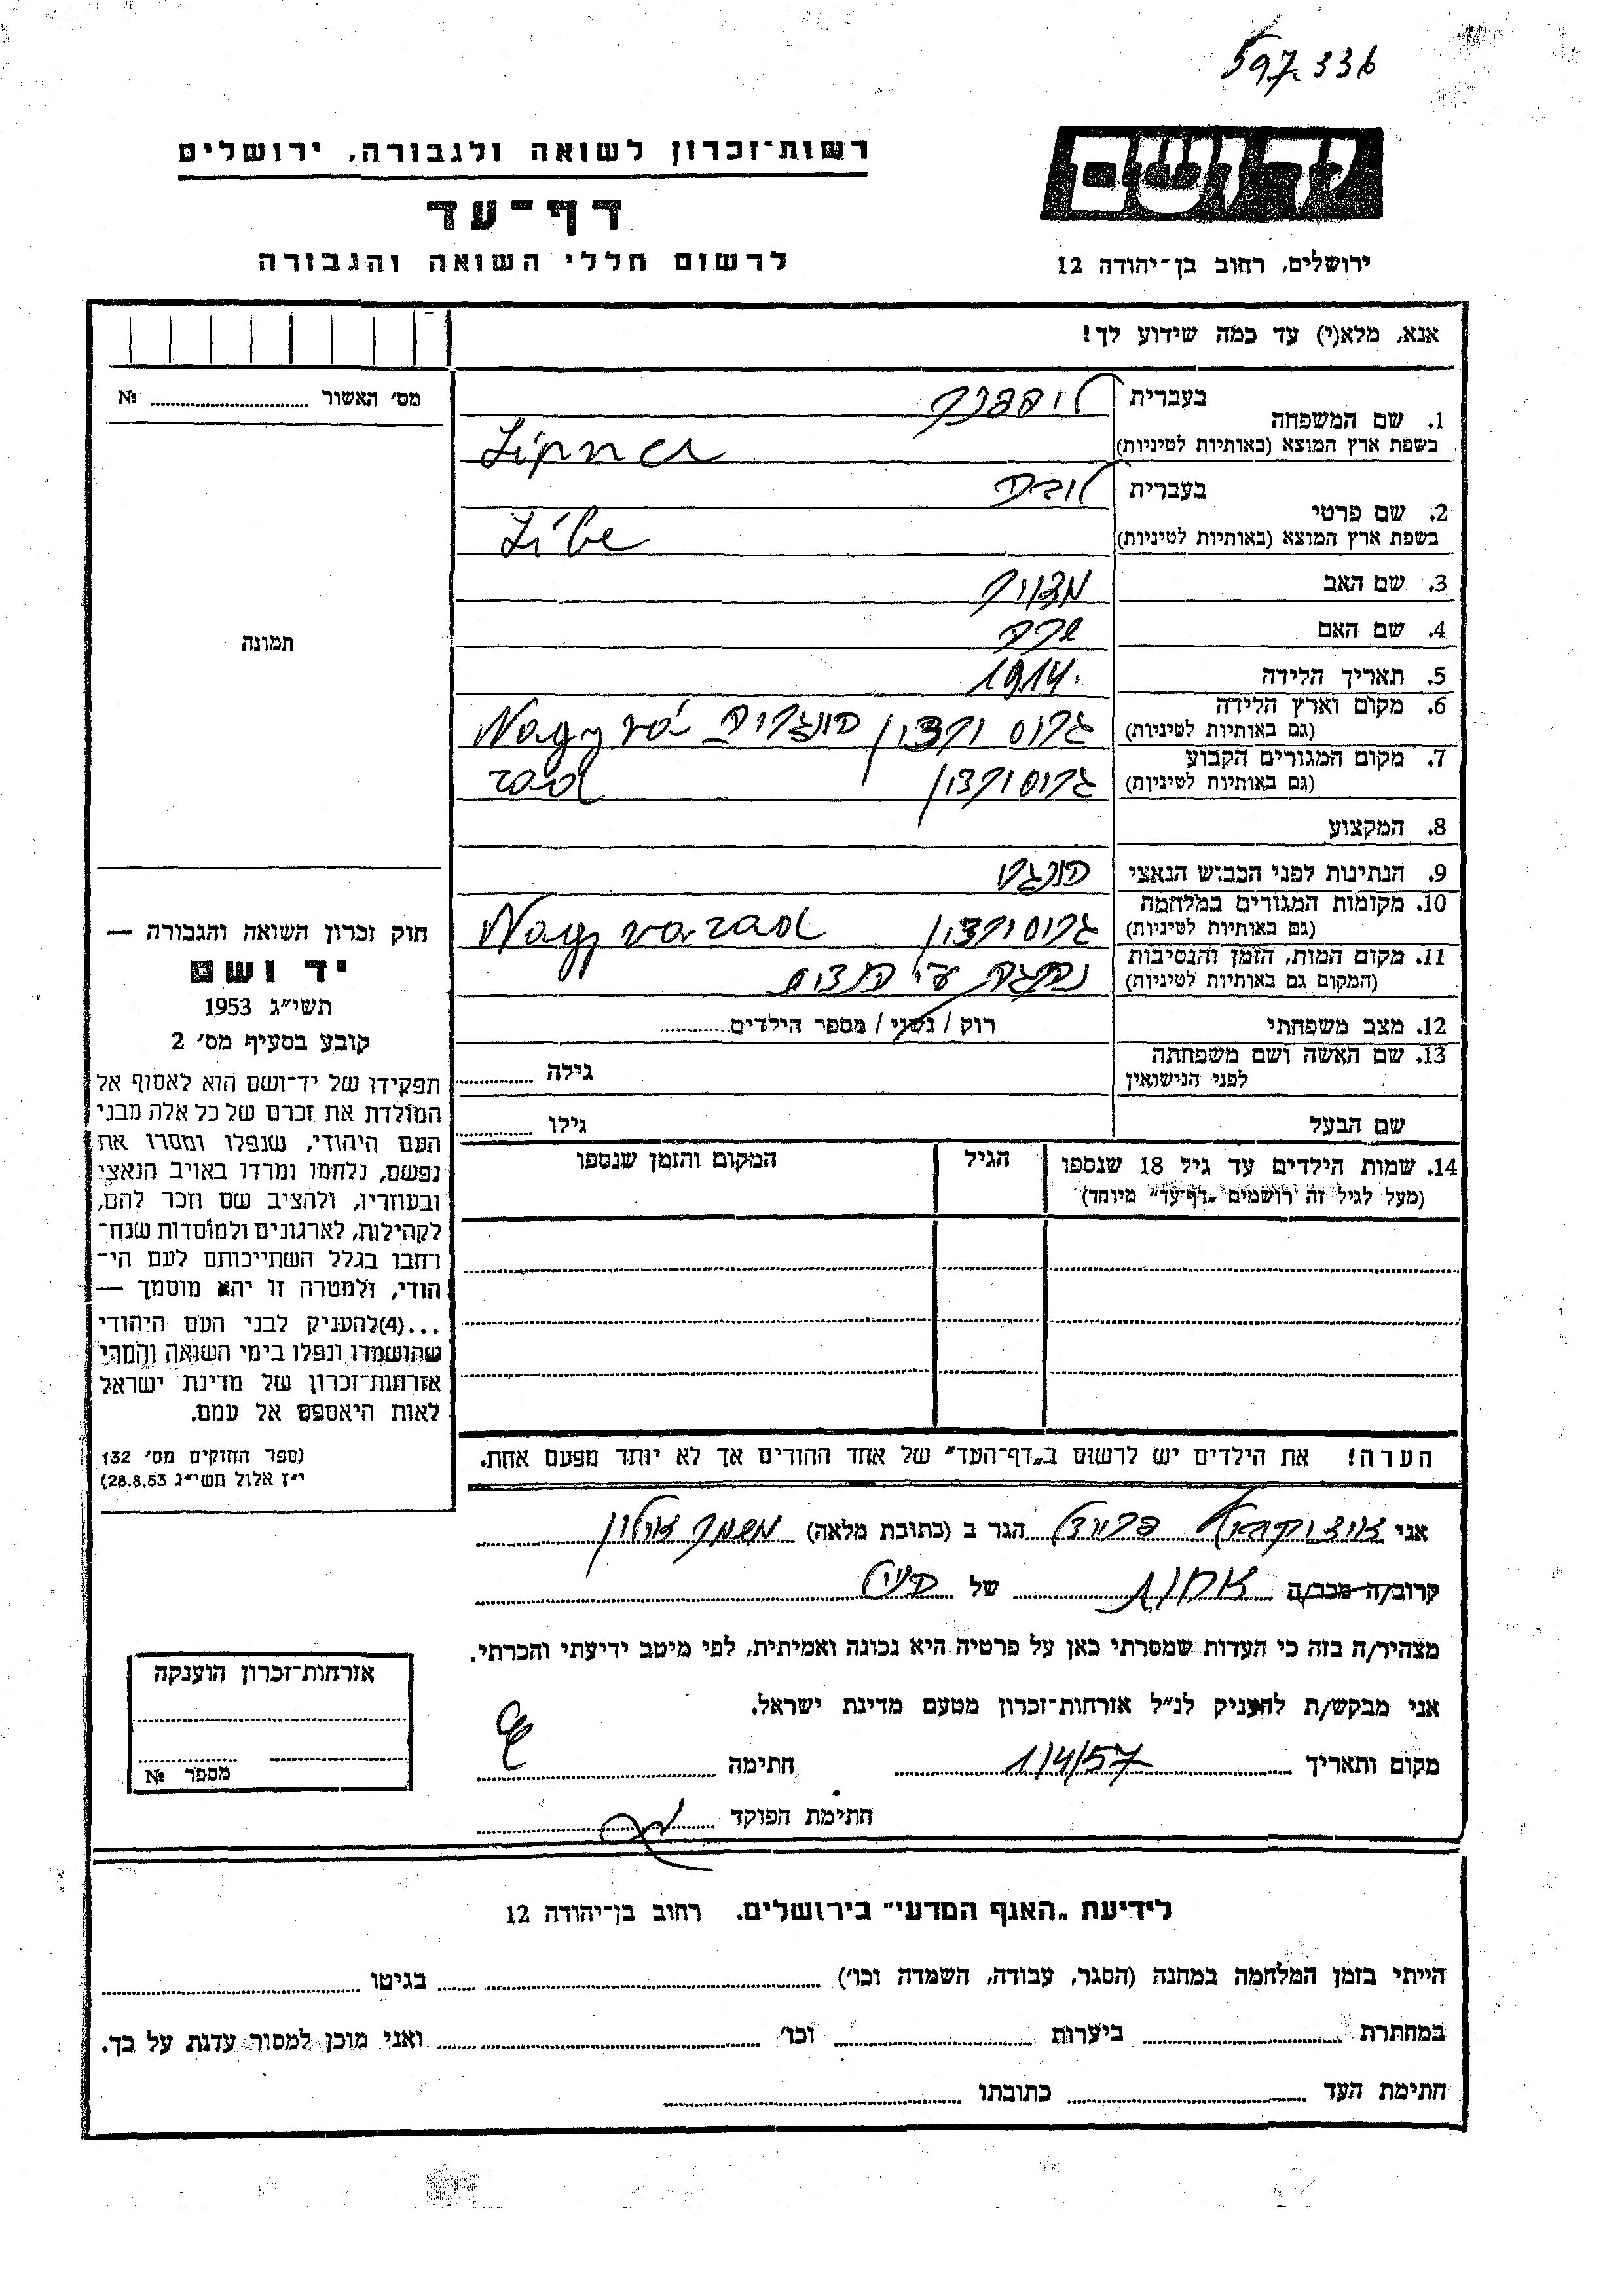 597.336
יד ושם
רשות־זכרון לשואה ולגבורה, ירושלים
דף־עד
לרשום חללי השואה והגבורה
ירושלים, רחוב בן־יהודה 12
אנא, מלא(י) עד כמה שידוע לך!
מס׳ האשור №
1. שם המשפחה
בעברית ליפנר
בשפת ארץ המוצא (באותיות לטיניות) Lipner
2. שם פרטי
בעברית
בשפת ארץ המוצא (באותיות לטיניות) Libe
3. שם האב
4. שם האם שרה
5. תאריך הלידה 1914.
6. מקום וארץ הלידה
(גם באותיות לטיניות) גרוס ורדין הונגריה Nagyvá-
7. מקום המגורים הקבוע
(גם באותיות לטיניות) גרוסורדין rad
8. המקצוע
9. הנתינות לפני הכבוש הנאצי הונגר׳
10. מקומות המגורים במלחמה
(גם באותיות לטיניות) גרוסורדין Nagyvarad
11. מקום המות, הזמן והנסיבות
(המקום גם באותיות לטיניות) נהרגה ע״י
12. מצב משפחתי רוק / נשוי / מספר הילדים
13. שם האשה ושם משפחתה
לפני הנישואין גילה
שם הבעל גילו
14. שמות הילדים עד גיל 18 שנספו הגיל המקום והזמן שנספו
(מעל לגיל זה רושמים „דף־עד״ מיוחד)
הערה! את הילדים יש לרשום ב„דף־העד״ של אחד ההורים אך לא יותר מפעם אחת.
תמונה
חוק זכרון השואה והגבורה —
יד ושם
תשי״ג 1953
קובע בסעיף מס׳ 2
תפקידו של יד־ושם הוא לאסוף אל
המולדת את זכרם של כל אלה מבני
העם היהודי, שנפלו ומסרו את
נפשם, נלחמו ומרדו באויב הנאצי
ובעוזריו, ולהציב שם וזכר להם,
לקהילות, לארגונים ולמוסדות שנח־
רחבו בגלל השתייכותם לעם הי־
הודי, ולמטרה זו יהא מוסמך —
...(4)להעניק לבני העם היהודי
שהושמדו ונפלו בימי השואה והמרי
אזרחות־זכרון של מדינת ישראל
לאות היאספם אל עמם.
(ספר החוקים מס׳ 132
י״ז אלול תשי״ג 28.8.53)
אני הגר ב (כתובת מלאה) משמר אילון
קרוב/ה מכר/ה אחות של הנ״ל
מצהיר/ה בזה כי העדות שמסרתי כאן על פרטיה היא נכונה ואמיתית, לפי מיטב ידיעתי והכרתי.
אני מבקש/ת להעניק לנ״ל אזרחות־זכרון מטעם מדינת ישראל.
מקום ותאריך 1/4/57 חתימה
חתימת הפוקד
אזרחות־זכרון הוענקה
מספר №
לידיעת „האגף המדעי״ בירושלים. רחוב בן־יהודה 12
הייתי בזמן המלחמה במחנה (הסגר, עבודה, השמדה וכו׳) בגיטו
במחתרת ביערות וכו׳ ואני מוכן למסור עדות על כך.
חתימת העד כתובתו